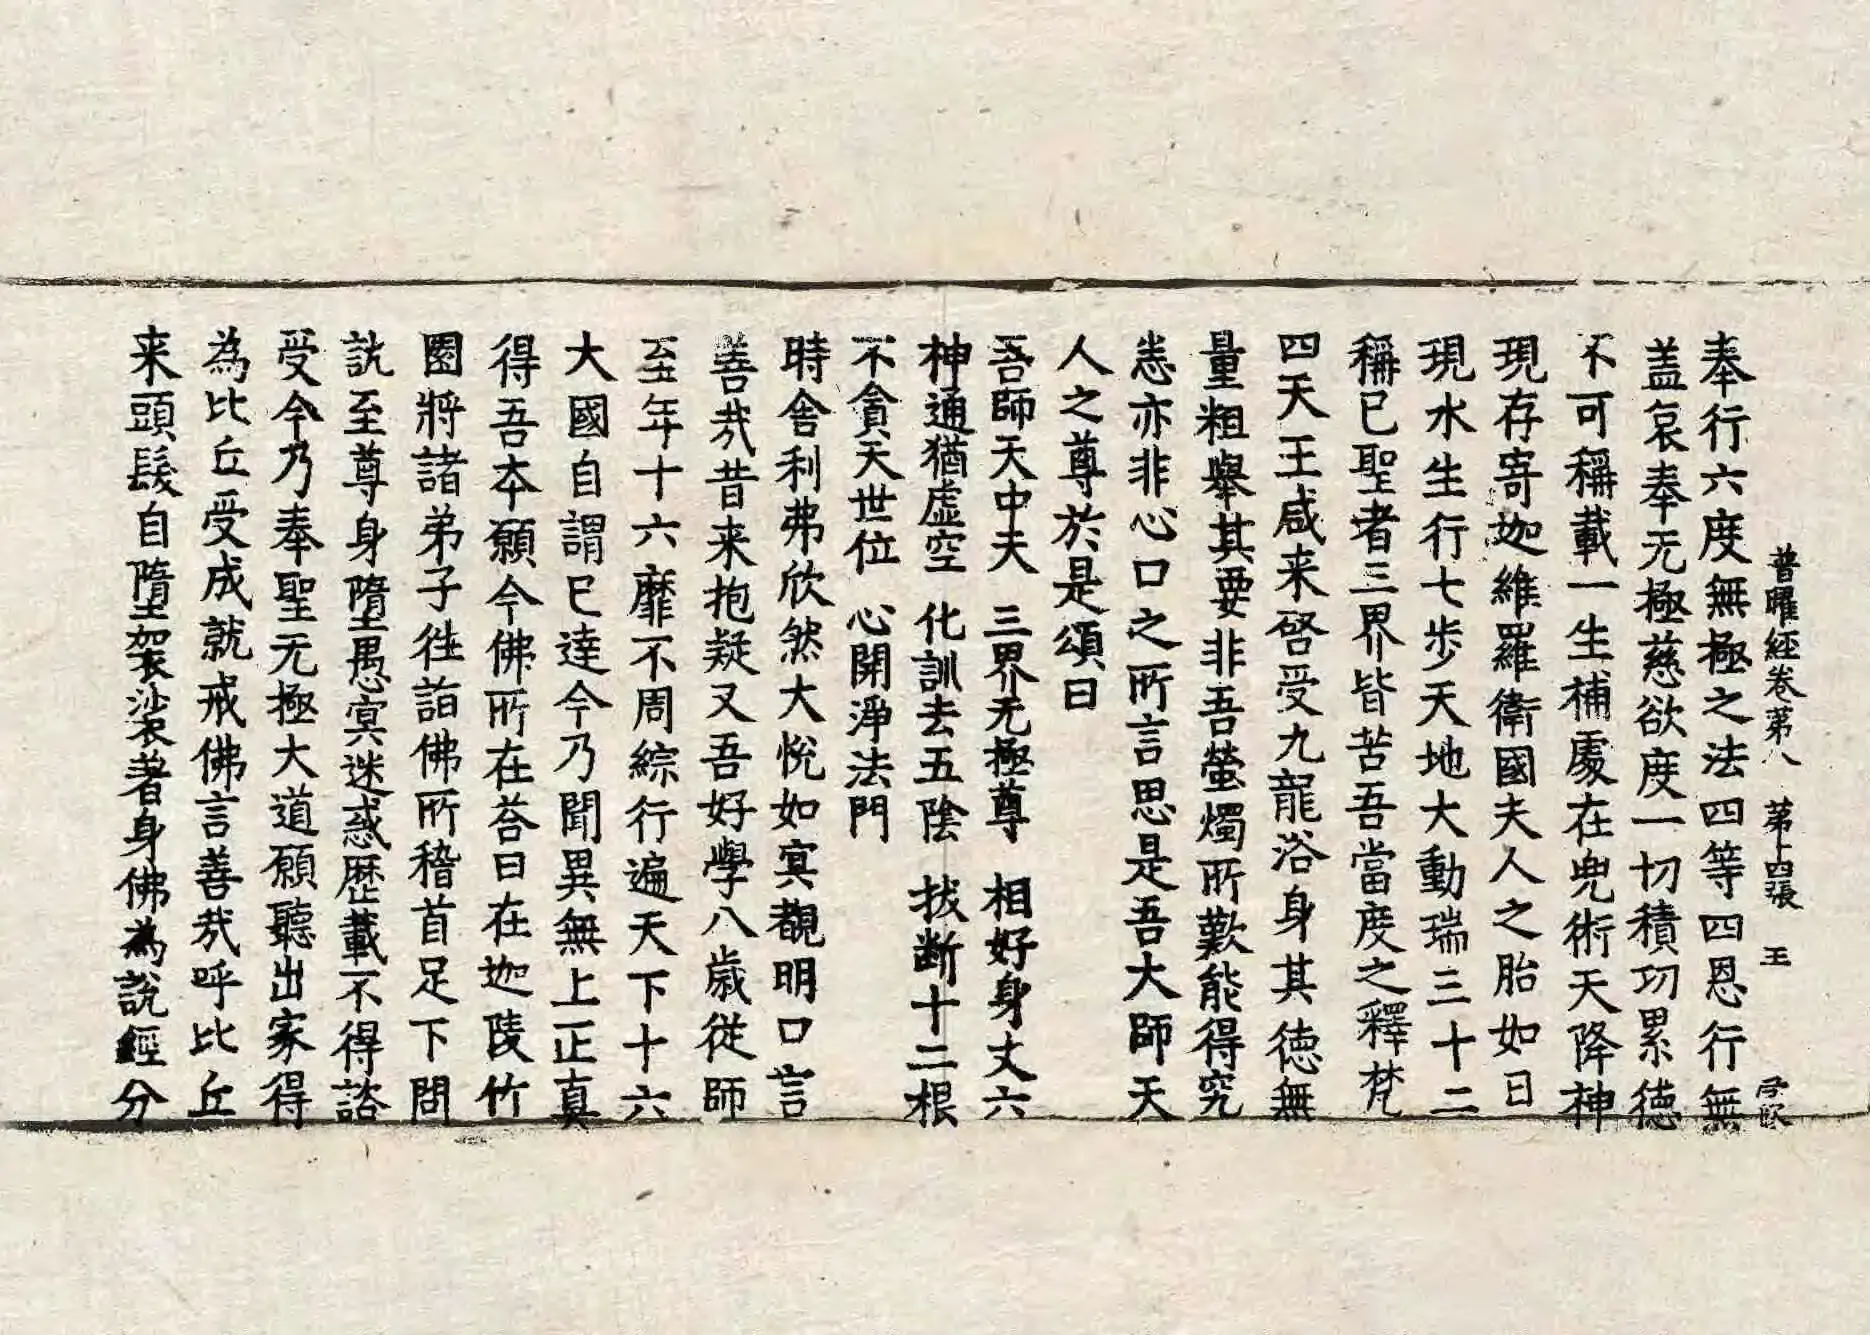 普曜經卷第八 第十四張 王
奉行六度無極之法四等四恩行無
盖哀奉无極慈欲度一切積功累德
不可稱載一生補處在兜術天降神
現存寄迦維羅衛國夫人之胎如日
現水生行七步天地大動瑞三十二
稱已聖者三界皆苦吾當度之釋梵
四天王咸来啓受九龍浴身其德無
量粗舉其要非吾螢燭所歎能得究
悉亦非心口之所言思是吾大師天
人之尊於是頌曰
吾師天中天 三界无極尊 相好身丈六
神通猶虛空 化訓去五陰 拔断十二根
不貪天世位 心開淨法門
時舍利弗欣然大悅如冥覩明口言
善㢤昔来抱疑又吾好學八歳從師
至年十六靡不周綜行遍天下十六
大國自謂已達今乃聞異無上正真
得吾本願今佛所在荅曰在迦陵竹
園將諸弟子往詣佛所稽首足下問
訊至尊身墮愚冥迷惑歷載不得諮
受今乃奉聖无極大道願聽出家得
為比丘受成就戒佛言善㢤呼比丘
来頭髮自墮袈裟著身佛為說經分